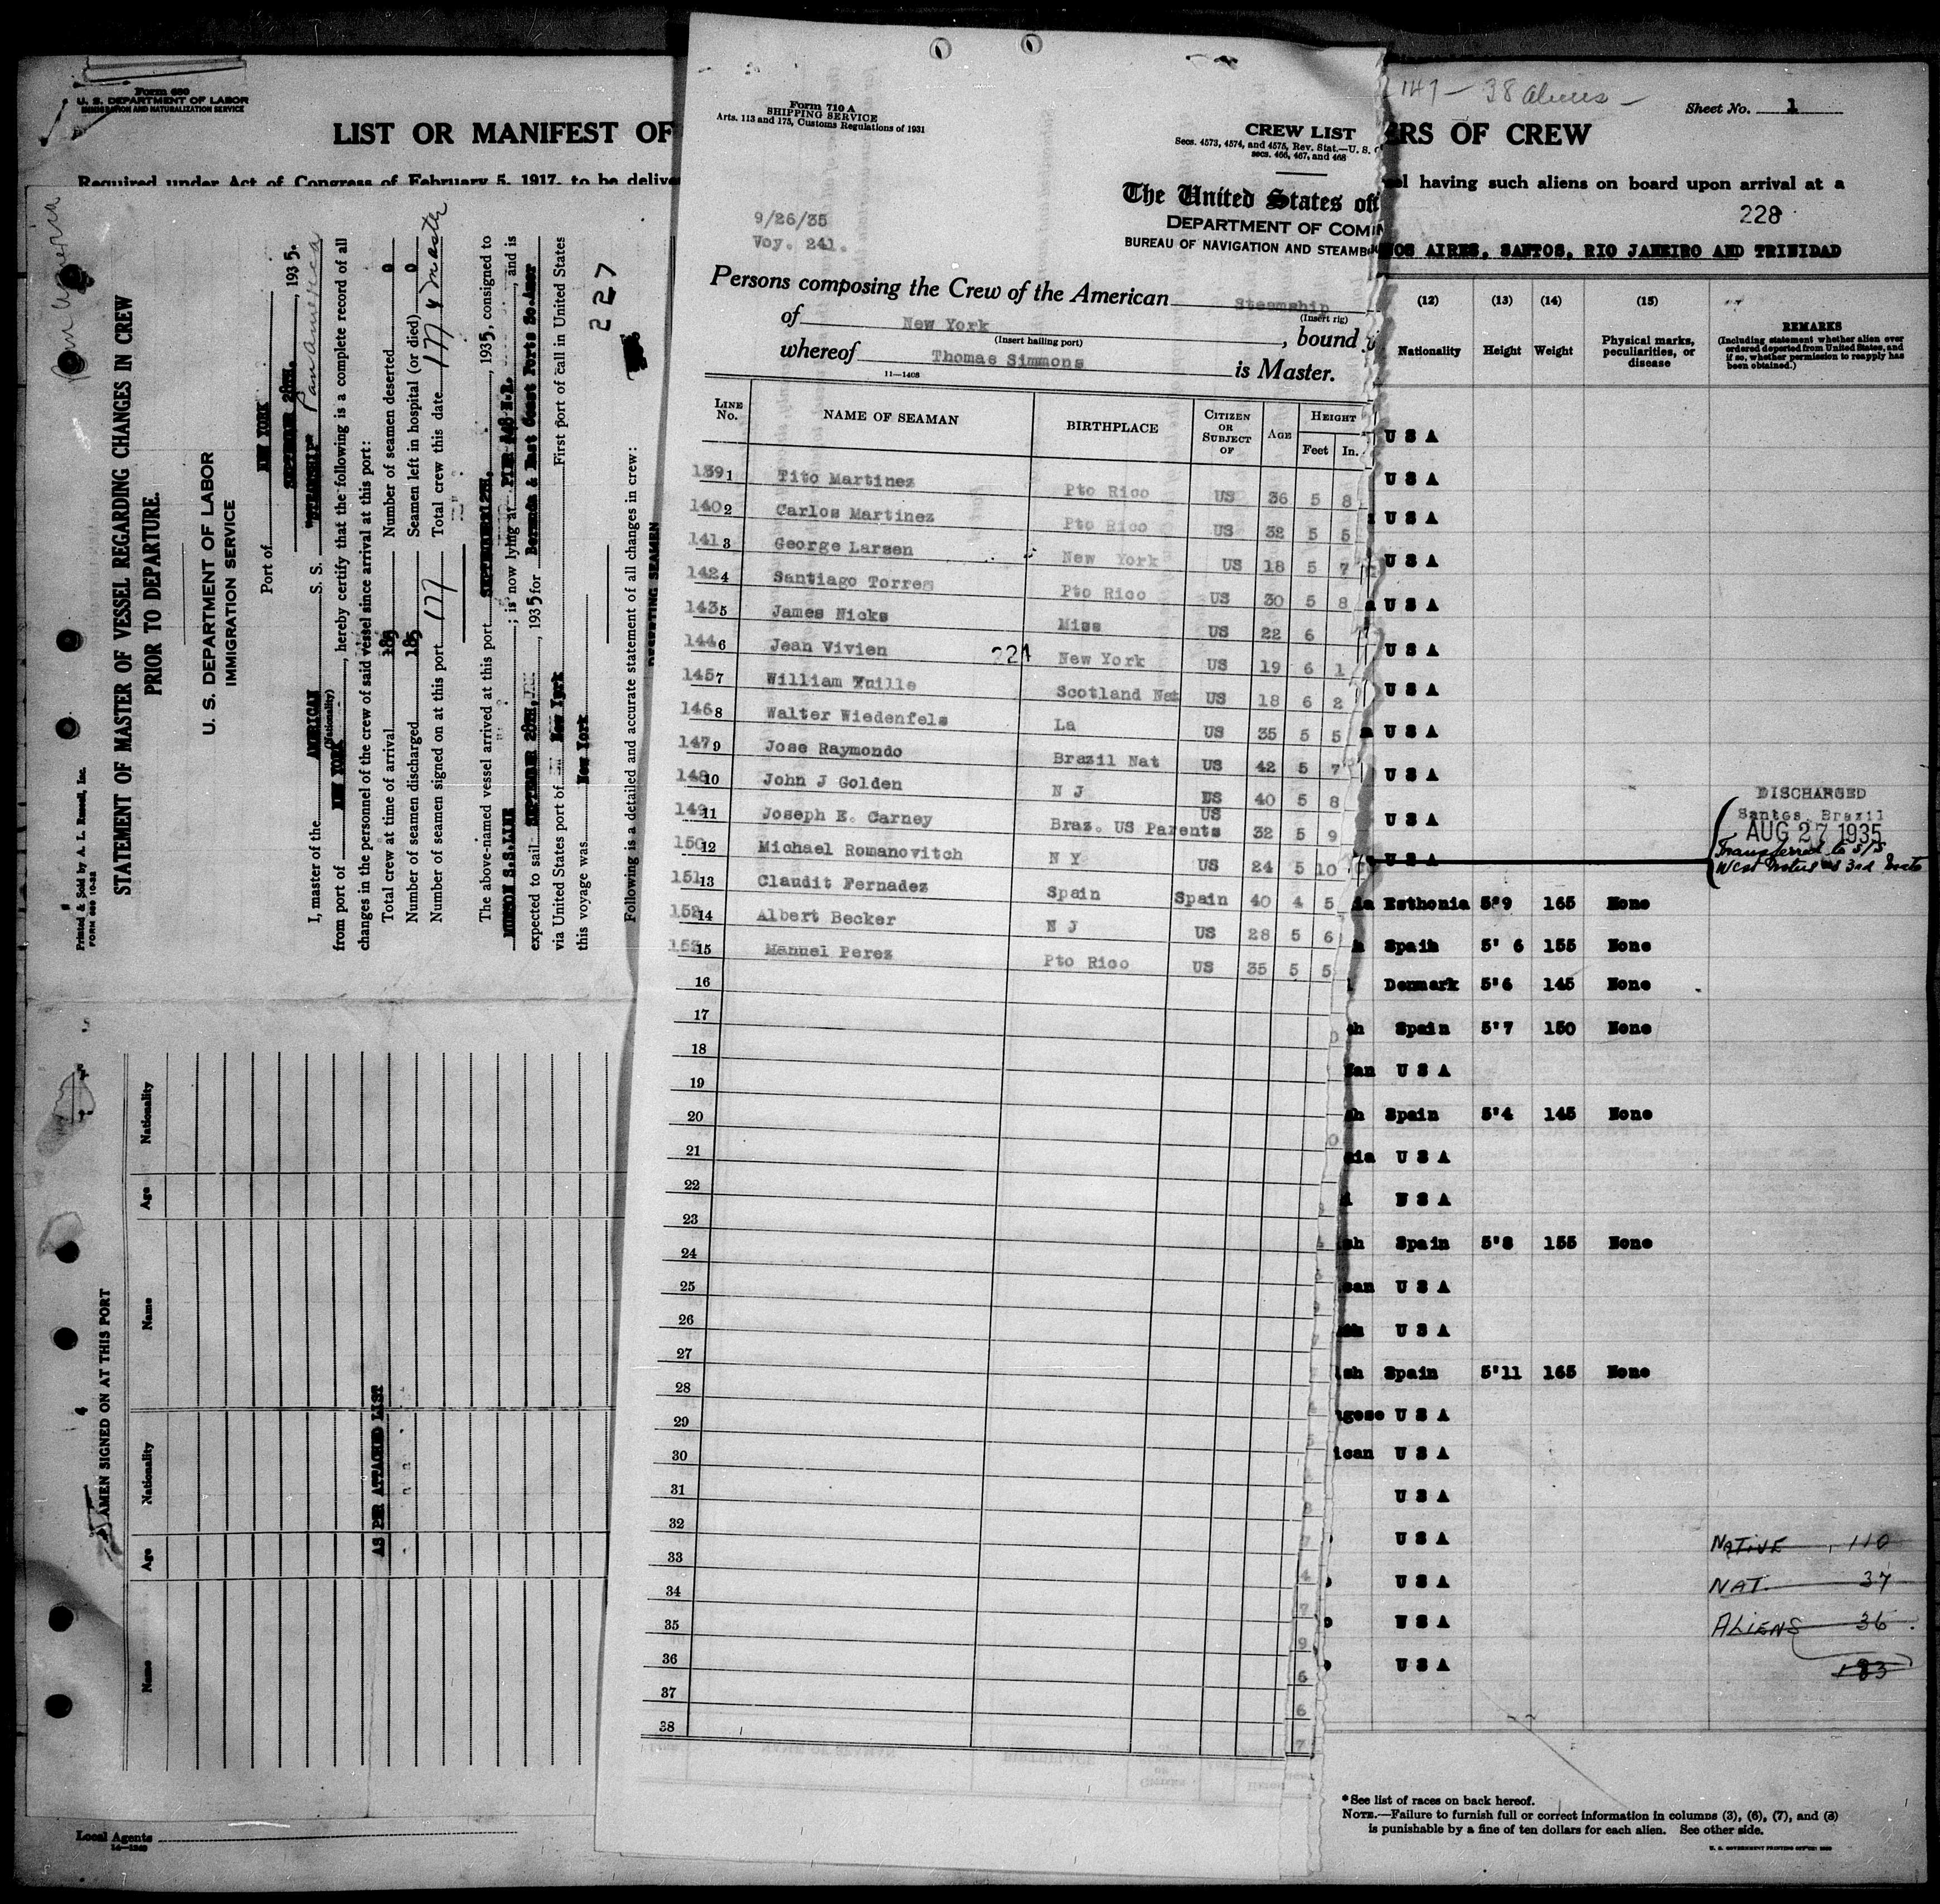 Form 680
U. S. DEPARTMENT OF LABOR
IMMIGRATION AND NATURALIZATION SERVICE
LIST OR MANIFEST OF
Required under Act of Congress of February 5, 1917, to be delive
Printed & Sold by A. L. Russell, Inc.
FORM 680 10-32
STATEMENT OF MASTER OF VESSEL REGARDING CHANGES IN CREW
PRIOR TO DEPARTURE.
U. S. DEPARTMENT OF LABOR
IMMIGRATION SERVICE
Port of NEW YORK
SEPTEMBER 28TH. , 1935.
I, master of the AMERICAN S. S. "STEAMSHIP" Pan America
(Nationality)
from port of NEW YORK, hereby certify that the following is a complete record of all
changes in the personnel of the crew of said vessel since arrival at this port:
Total crew at time of arrival 185 Number of seamen deserted 0
Number of seamen discharged 185 Seamen left in hospital (or died) 0
Number of seamen signed on at this port 177 Total crew this date 177 & master
The above-named vessel arrived at this port SEPTEMBER 12TH. , 1935, consigned to
MUNSON S.S.LINE ; is now lying at PIER , and is
expected to sail SEPTEMBER 28TH, , 1935 for Bermuda & East Coast Ports So.Amer
via United States port of New York First port of call in United States
this voyage was New York
227
Following is a detailed and accurate statement of all changes in crew:
DESERTING SEAMEN
SEAMEN SIGNED ON AT THIS PORT
Name Age Nationality Name Age Nationality
AS PER ATTACHED LIST
Local Agents
Form 710 A
SHIPPING SERVICE
Arts. 113 and 175, Customs Regulations of 1931
CREW LIST
Secs. 4573, 4574, and 4575, Rev. Stat.—U. S. C
secs. 466, 467, and 468
The United States of
DEPARTMENT OF COM
BUREAU OF NAVIGATION AND STEAMB
9/26/35
Voy. 241.
Persons composing the Crew of the American Steamship
(Insert rig)
of New York , bound
(Insert hailing port)
whereof Thomas Simmons is Master.
11—1408
LINE No. NAME OF SEAMAN BIRTHPLACE CITIZEN OR SUBJECT OF AGE HEIGHT Feet In.
139 1 Tito Martinez Pto Rico US 36 5 8
140 2 Carlos Martinez Pto Rico US 32 5 5
141 3 George Larsen New York US 18 5 7
142 4 Santiago Torres Pto Rico US 30 5 8
143 5 James Nicks Miss US 22 6
144 6 Jean Vivien 221 New York US 19 6 1
145 7 William Tuille Scotland Nat US 18 6 2
146 8 Walter Wiedenfels La US 35 5 5
147 9 Jose Raymondo Brazil Nat US 42 5 7
148 10 John J Golden N J US 40 5 8
149 11 Joseph E. Carney Braz. US Parents US 32 5 9
150 12 Michael Romanovitch N Y US 24 5 10
151 13 Claudit Fernadez Spain Spain 40 4 5
152 14 Albert Becker N J US 28 5 6
153 15 Manuel Perez Pto Rico US 35 5 5
16
17
18
19
20
21
22
23
24
25
26
27
28
29
30
31
32
33
34
35
36
37
38
147 — 38 aliens —
Sheet No. 1
RS OF CREW
el having such aliens on board upon arrival at a
228
OS AIRES, SANTOS, RIO JANEIRO AND TRINIDAD
(12) (13) (14) (15)
Nationality Height Weight Physical marks, peculiarities, or disease
REMARKS
(Including statement whether alien ever
ordered deported from United States, and
if so, whether permission to reapply has
been obtained.)
U S A
U S A
U S A
U S A
U S A
U S A
U S A
U S A
U S A
U S A
U S A
DISCHARGED
Santos, Brazil
AUG 27 1935
Transferred to S/S
West Notus as 3rd Mate
Esthonia 5'9 165 None
Spain 5' 6 155 None
Denmark 5'6 145 None
Spain 5'7 150 None
U S A
Spain 5'4 145 None
U S A
U S A
Spain 5'8 155 None
U S A
U S A
Spain 5'11 165 None
U S A
U S A
U S A
U S A
U S A
U S A
U S A
NATIVE 110
NAT. 37
ALIENS 36
183
*See list of races on back hereof.
NOTE.—Failure to furnish full or correct information in columns (3), (6), (7), and (8)
is punishable by a fine of ten dollars for each alien. See other side.
U. S. GOVERNMENT PRINTING OFFICE